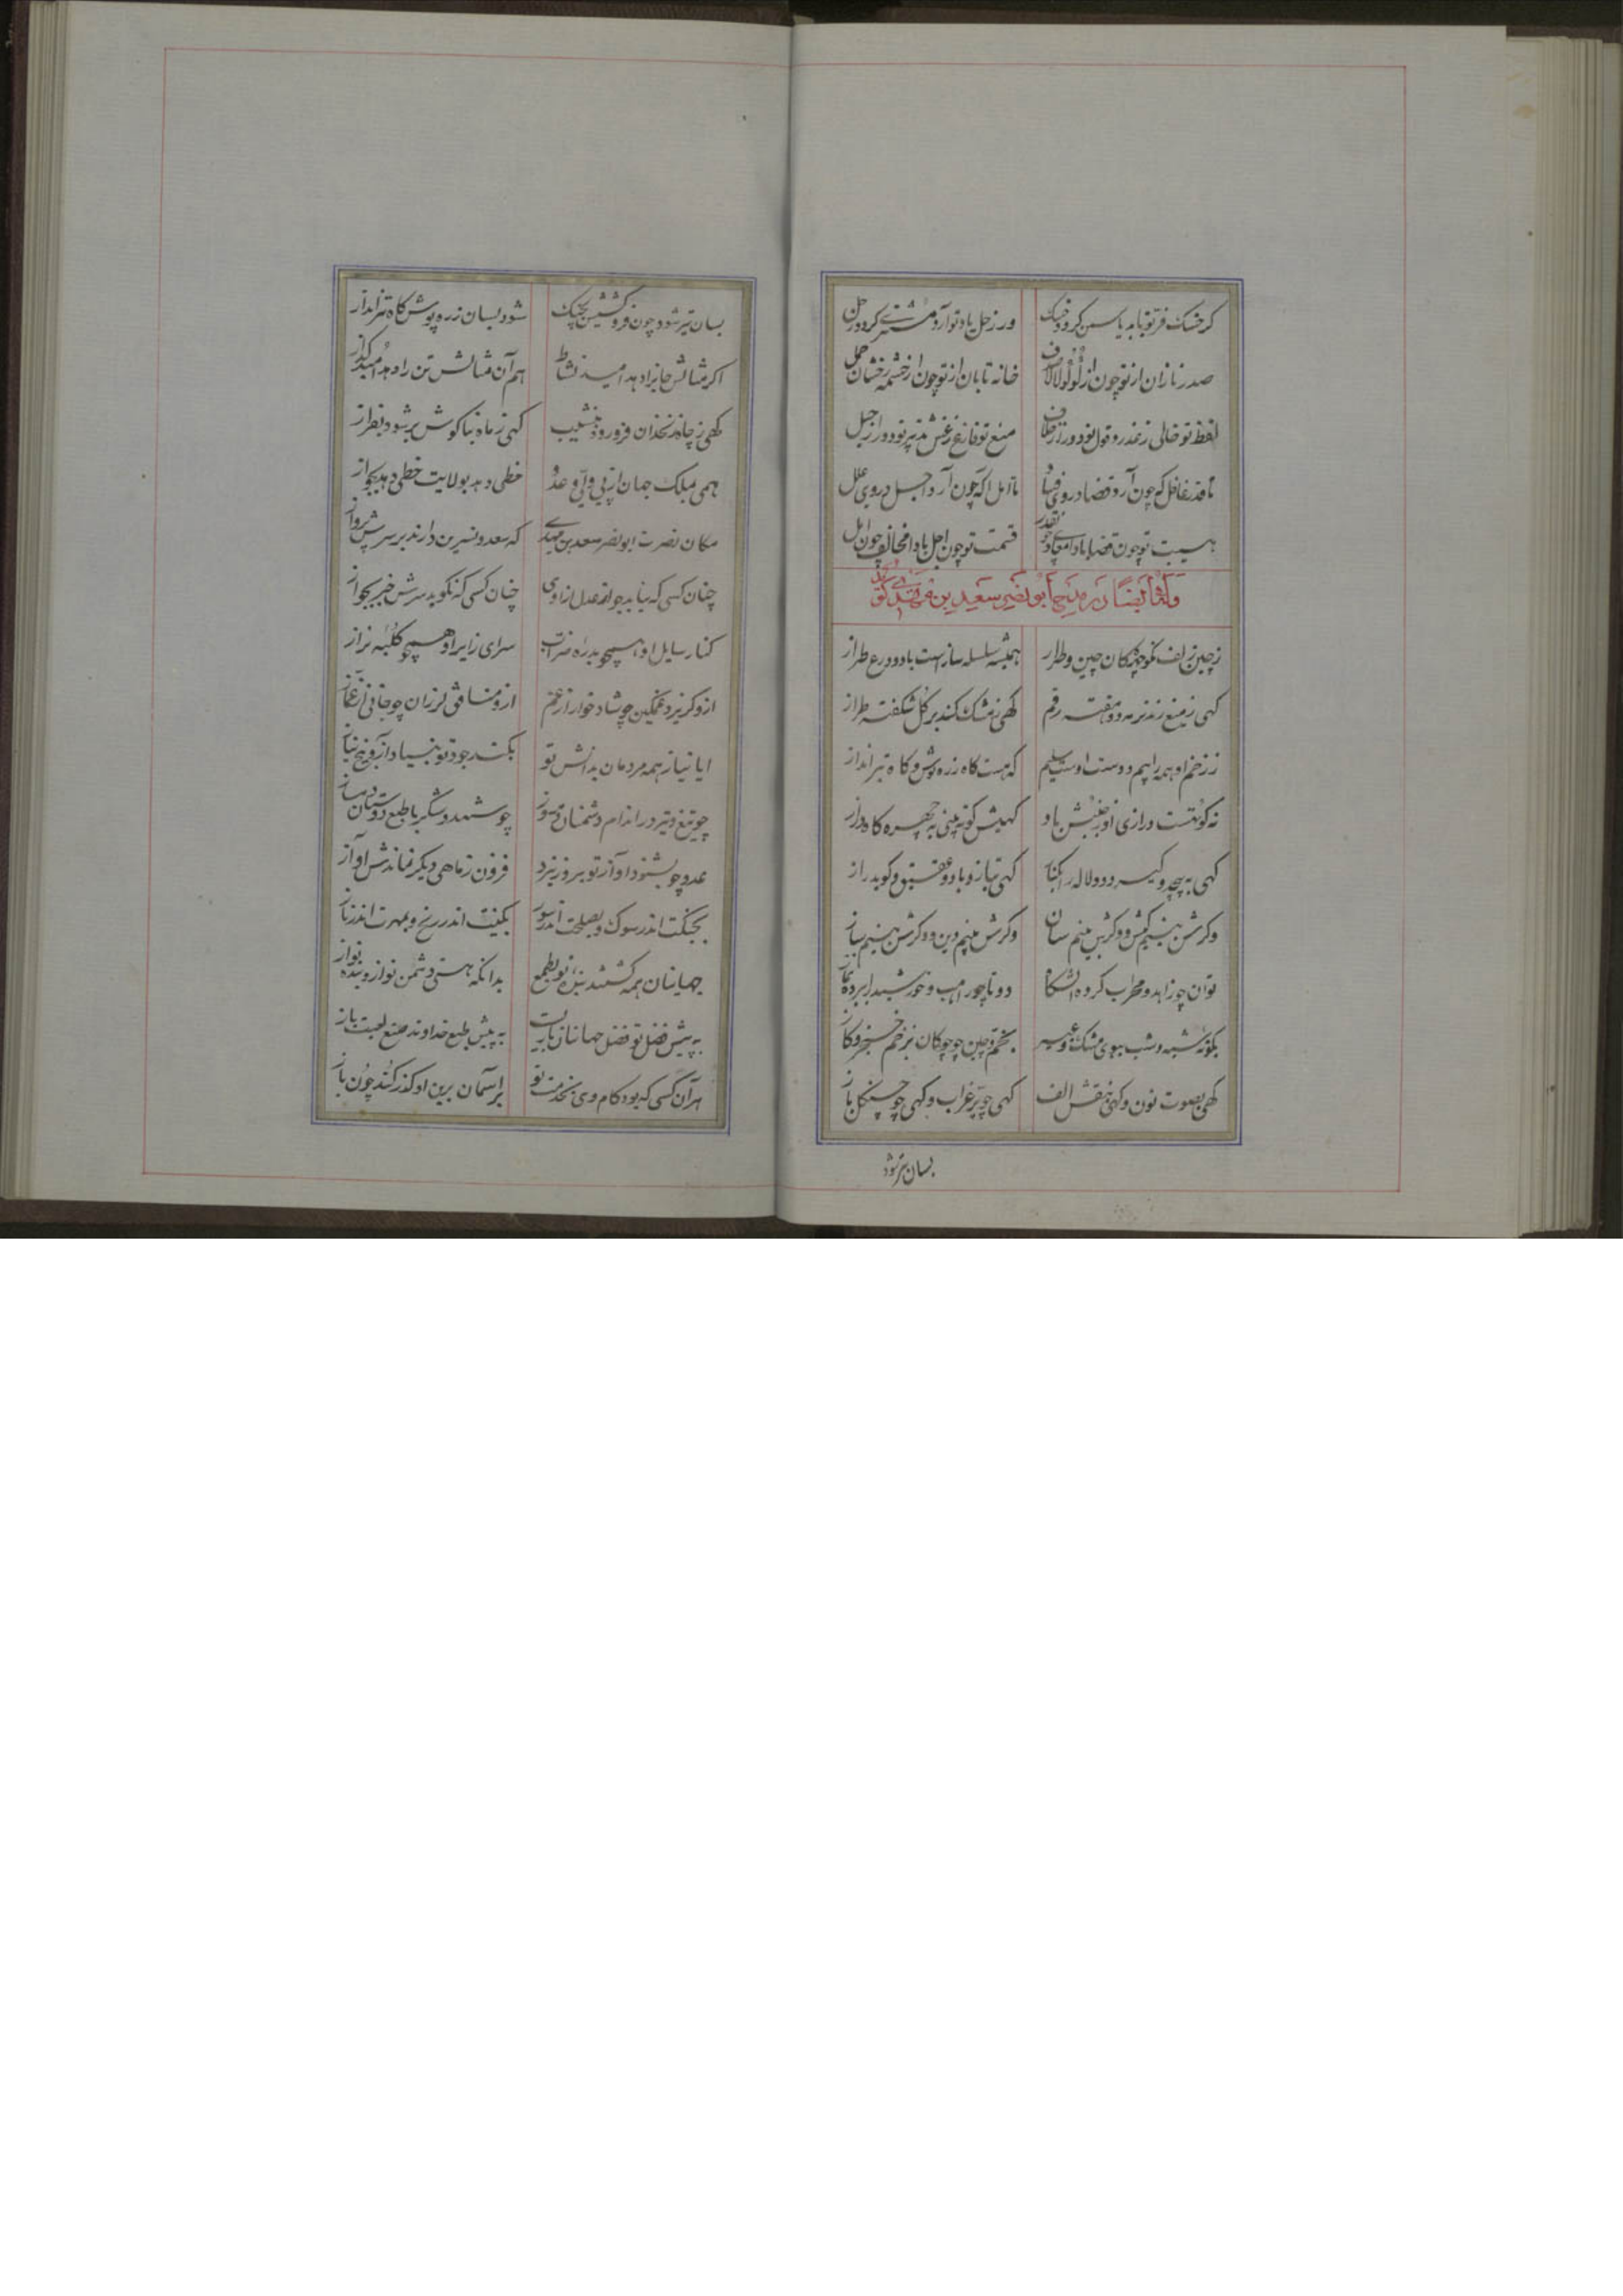 کر خسک فر تو یابد یاسمن کردد خسک ور زحل یاد تو آرد مشتری کردد زحل
صدر نازان از تو چون از لولو لالا صدف خانه تابان از تو چون از چشمه رخشان حمل
لفظ تو خالی ز تندر و قول تو دور از خلاف منع تو فارغ ز غش تدبیر تو دور از حیل
تا قدر غافل که چون آرد قضا در وی فنا تا امل اکه چون آرد اجل در وی علل
هیبت تو چون قضا بادا معادی چون قدر قسمت تو چون اجل بادا مخالف چون امل
وله ایضا در مدیح ابونصر سعید بن مهدی کوید
ز چین زلف نکو چهرکان چین و طراز همیشه سلسله ساز است باد و درع طراز
کهی ز میغ زند بر مه دو هفته رقم کهی ز مشک کند بر کل شکفته طراز
ز زخم او همه را بیم و دوست اوست سلیم که هست کاه زره پوش و کاه تیر انداز
نه کوتهست و درازی او ز جنبش باد کهیش کوته بینی به چهره کاه دراز
کهی به پیچد و کیرد دو لاله را بکنار کهی بیازد و با دو عقیق کوید راز
وکرش بینم کیش و وکرش بینم سان وکرش بینم دین و وکرش بینم ساز
نوان چو زاهد و محراب کرده آتشکاه دوتا چو راهب و خورشید را برده نماز
بکونه شبه و شب ببوی مشک و عبیر بخم و چین چو چوکان بزخم خنجر و کاز
کهی بصورت نون و کهی بنقش الف کهی چو پر غراب و کهی چو چنکل باز
بسان تیر شود
بسان تیر شود چون فرو کشیش بچنک شود بسان زره پوش کاه تیر انداز
اکر مثالش جانرا دهد امید نشاط هم آن مثالش تن را دهد امید کداز
کهی ز چاه زنخدان فرو رود بنشیب کهی ز ماه بناکوش بر شود بفراز
همی بملک جهان از پی ولی و عدو خطی دهد بولایت خطی دهد بجواز
مکان نصرت ابونصر سعد بن مهدی که سعد و نسرین دارند بر سرش پرواز
چنان کسی که نیابد بجواند عدل از اوی چنان کسی که نکوید سرش خبر بجواز
کنار سایل او همچو بدره ضراب سرای زایر او همچو کلبه بزاز
ازو کریزد غمکین چو شاد خوار از غم ازو منافق لرزان چو جانی از غماز
ایا نیاز همه مردمان بدانش تو بکند جود تو بنیاد آز و بیخ نیاز
چو تیغ و تیر در اندام دشمنان دلسوز چو شهد و شکر با طبع دوستان دمساز
عدو چو بشنود آواز تو بروز نبرد فزون ز ماهی دیکر نماندش آواز
بجنکت اندر سوک و بصلحت اندر سور بکینت اندر رنج و بمهرت اندر ناز
جهانیان همه کشتند بنده تو بطمع بدانکه هستی دشمن نواز و بنده نواز
به پیش فضل تو فضل جهانیان بازیست به پیش طبع خداوند صنع لعبت باز
هر آن کسی که بود کام وی بخدمت تو بر آسمان برین او کذر کند چون باز